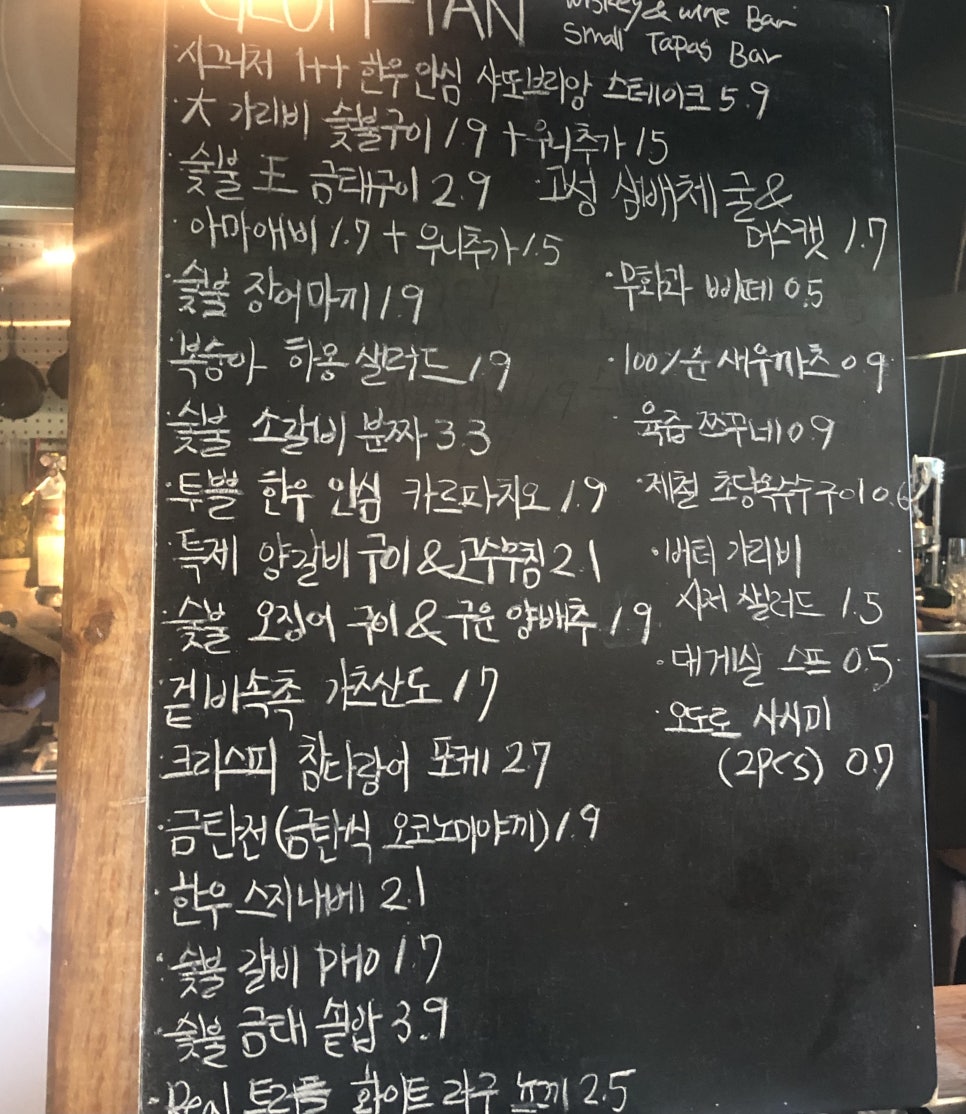 GEUM-TAN
Wiskey & wine Bar
Small Tapas Bar
·시그니처 1++ 한우 안심 샤또브리앙 스테이크 5.9
·大 가리비 숯불구이 1.9 + 우니추가 1.5
·숯불 王 금태구이 2.9
·아마애비 1.7 + 우니추가 1.5
·숯불 장어마끼 1.9
·복숭아 하몽 샐러드 1.9
·숯불 소갈비 분짜 3.3
·투뿔 한우 안심 카르파치오 1.9
·특제 양갈비 구이 & 고수무침 2.1
·숯불 오징어 구이 & 구운 양배추 1.9
·겉바속촉 가츠산도 1.7
·크리스피 참다랑어 포케 2.7
·금탄전(금탄식 오코노미야끼) 1.9
·한우 스지나베 2.1
·숯불 갈비 PHO 1.7
·숯불 금태 솥밥 3.9
·Real 트러플 화이트 라구 뇨끼 2.5
·고성 삼배체 굴 &
머스캣 1.7
·무화과 빠떼 0.5
·100% 순 새우까츠 0.9
·육즙 쯔꾸네 0.9
·제철 초당옥수수 구이 0.6
·버터 가리비
시저 샐러드 1.5
·대게살 스프 0.5
·오도로 사시미
(2pcs) 0.7